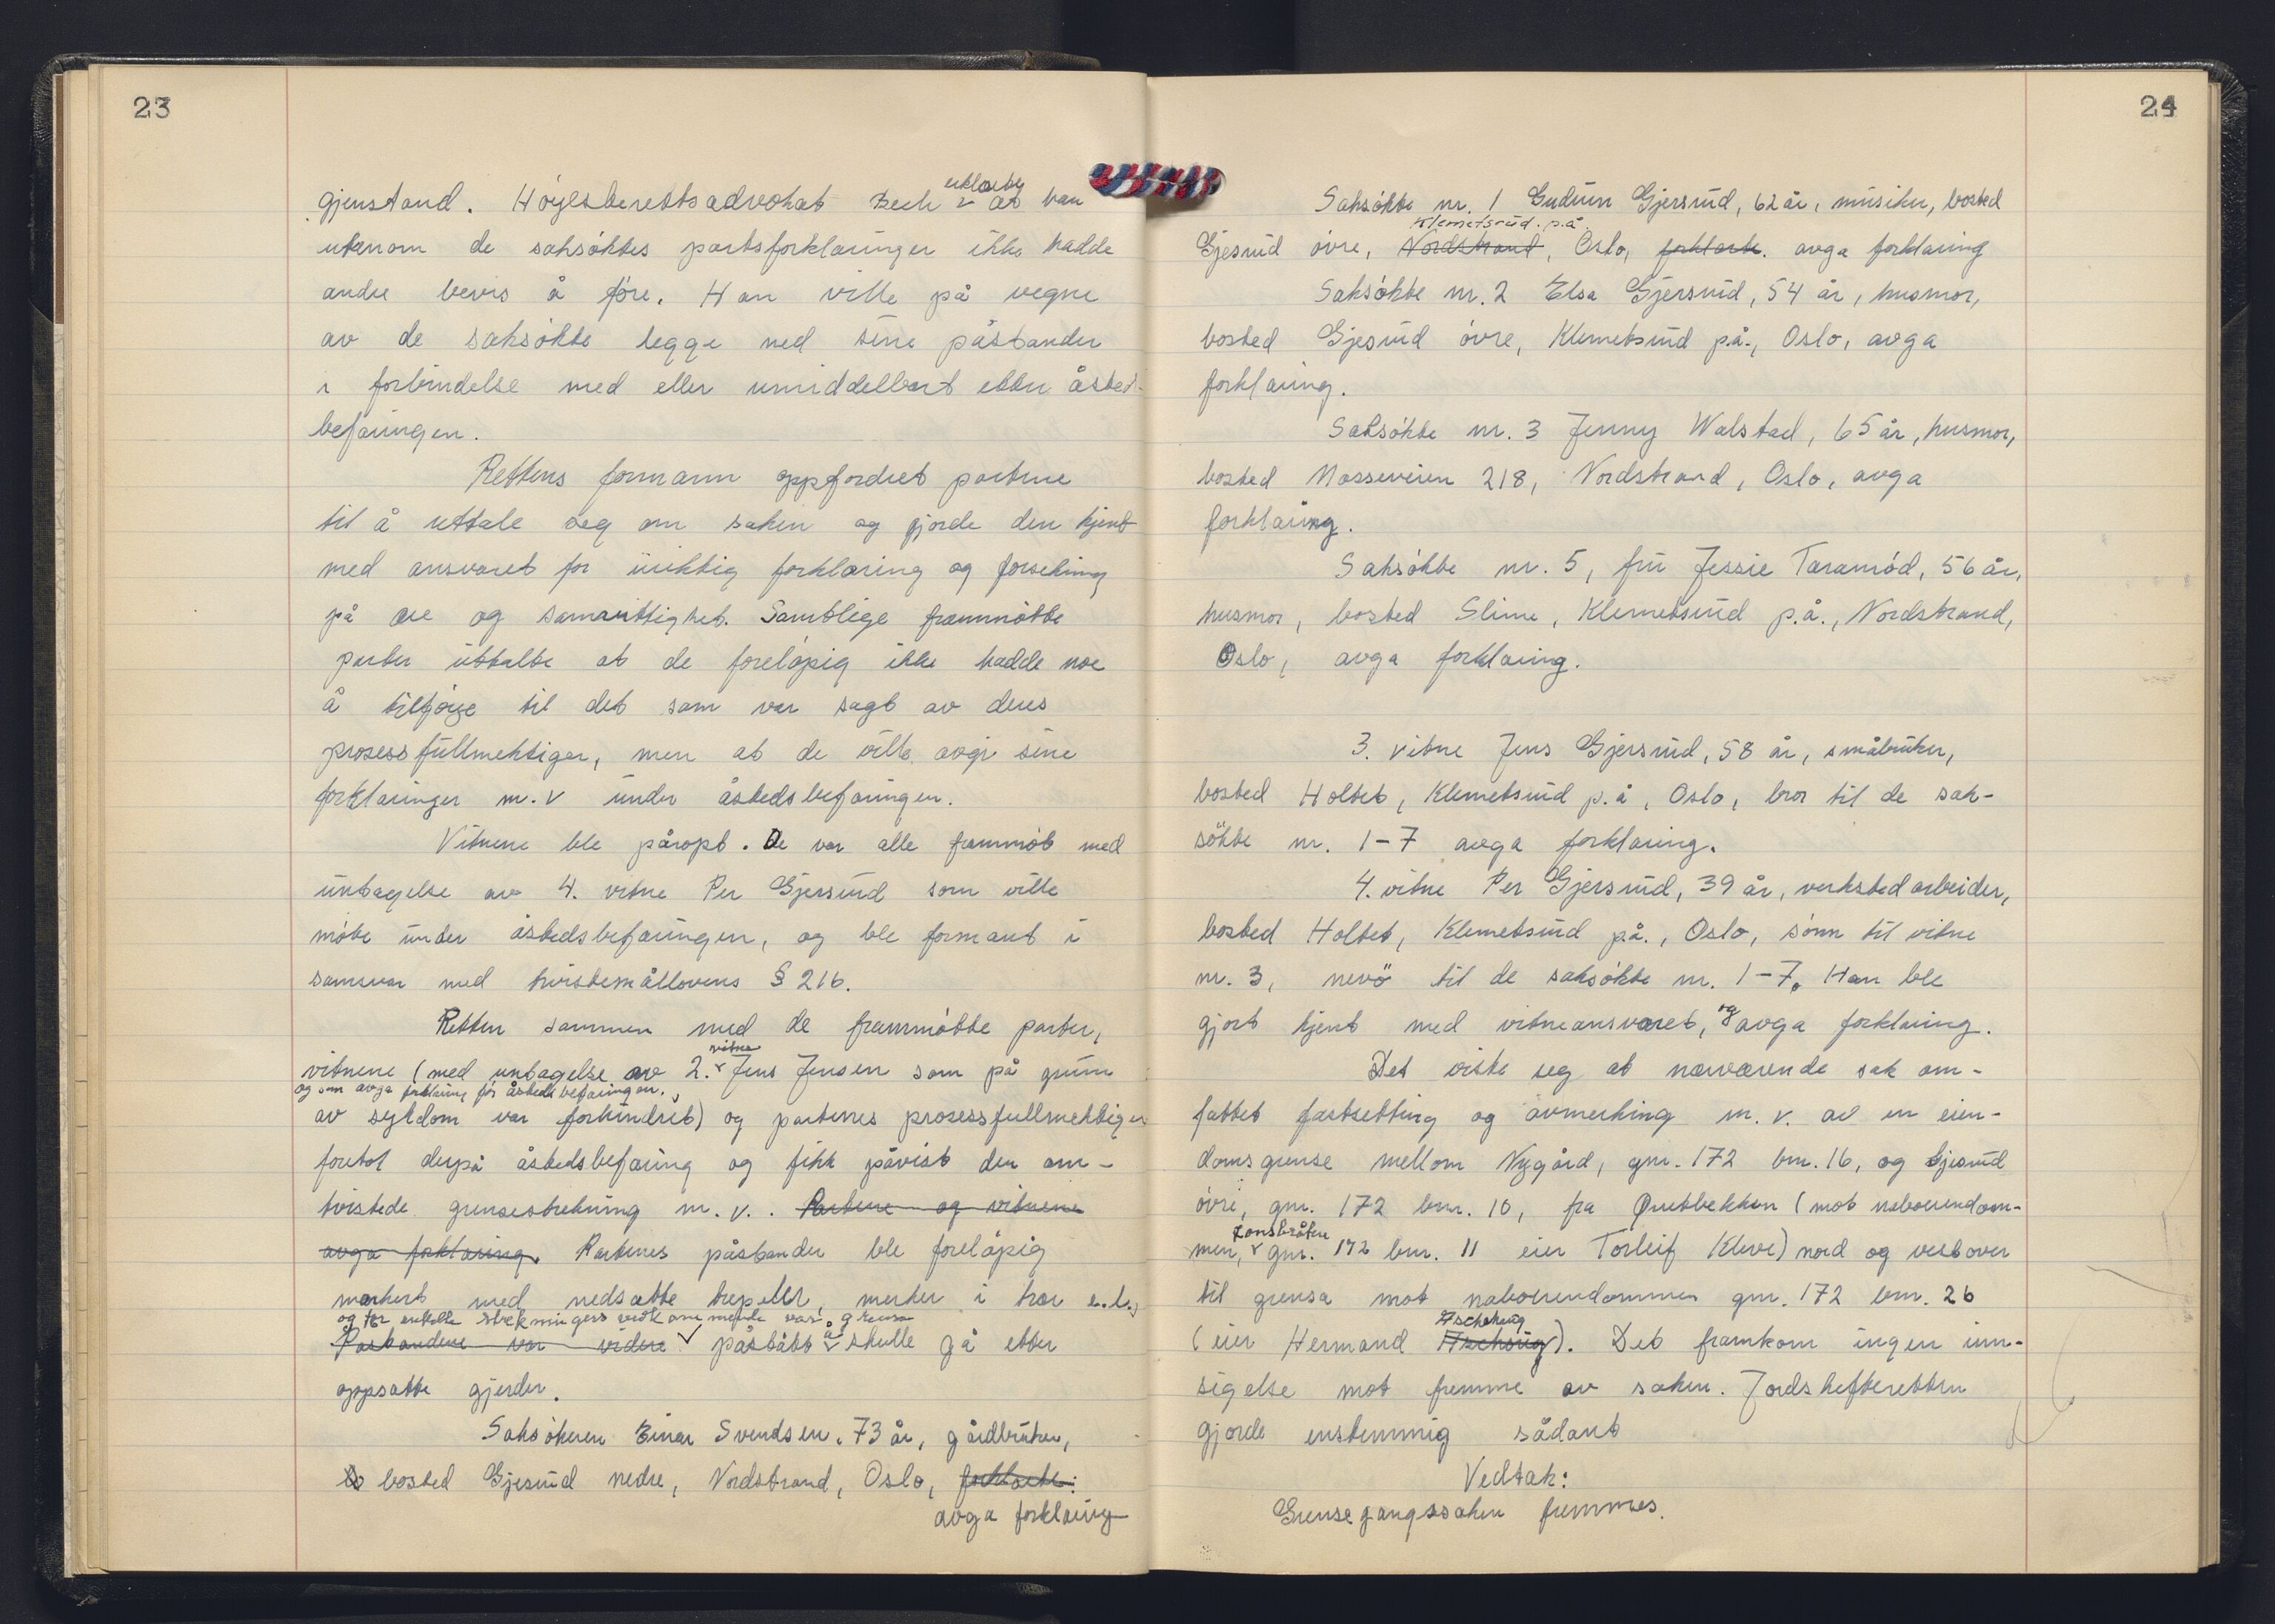 23
gjenstand. Höyesterettsadvokat Bech erklærte at han
utenom de saksöktes partsforklaringer ikke hadde
andre bevis å före. Han ville på vegne
av de saksökte legge ned sine påstander
i forbindelse med eller umiddelbart etter åsteds-
befaringen.
Rettens formann oppfordret partene
til å uttale seg om saken og gjorde dem kjent
med ansvaret for uriktig forklaring og forsikring
på ære og samvittighet. Samtlige frammötte
parter uttalte at de forelöpig ikke hadde noe
å tilföye til det som var sagt av deres
prosessfullmektiger, men at de ville avgi sine
forklaringer m.v under åstedsbefaringen.
Vitnene ble påropt. De var alle frammöt med
untagelse av 4. vitne Per Gjersrud som ville
möte under åstedsbefaringen, og ble formant i
samsvar med tvistemållovens § 216.
Retten sammen med de frammötte parter,
vitnene (med untagelse av 2. vitne Jens Jensen som på grunn
og som avga forklaring för åstedsbefaringen.
av sykdom var forhindret) og partenes prosessfullmektiger
foretok derpå åstedsbefaring og fikk påvist den om-
tvistede grensestrekning m.v.. Partene og vitnene
avga forklaring. Partenes påstander ble forelöpig
markert med nedsatte trepeler, merker i trær e.l.,
og for enkelte strekningers vedkommende var grensa
Påstandene var videre påstått å skulle gå etter
oppsatte gjerder.
Saksökeren Einar Svendsen, 73 år, gårdbruker,
bosted Gjesrud nedre, Nordstrand, Oslo, forklarte:
avga forklaring
24
Saksökte nr. 1 Gudrun Gjersrud, 62 år, musiker, bosted
Klemetsrud p.å
Gjesrud övre, Nordstrand, Oslo, forklarte. avga forklaring
Saksökte nr. 2 Elsa Gjersrud, 54 år, husmor,
bosted Gjesrud övre, Klemetsrud p.å., Oslo, avga
forklaring.
Saksökte nr. 3 Jenny Walstad, 65 år, husmor,
bosted Mosseveien 218, Nordstrand, Oslo, avga
forklaring.
Saksökte nr. 5, fru Jessie Taramöd, 56 år,
husmor, bosted Slime, Klemetsrud p.å., Nordstrand,
Oslo, avga forklaring.
3. vitne Jens Gjersrud, 58 år, småbruker,
bosted Holtet, Klemetsrud p.å, Oslo, bror til de sak-
sökte nr. 1-7 avga forklaring.
4. vitne Per Gjersrud, 39 år, verkstedarbeider,
bosted Holtet, Klemetsrud på., Oslo, sönn til vitne
nr. 3, nevö til de saksökte nr. 1-7. Han ble
gjort kjent med vitneansvaret, og avga forklaring.
Det viste seg at nærværende sak om-
fattet fastsetting og avmerking m.v. av en eien-
domsgrense mellom Nygård, gnr. 172 bnr. 16, og Gjesrud
övre, gnr. 172 bnr. 10, fra (mot naboeiendom-
men, Tonsbråten gnr. 172 bnr. 11 eier Torleif Kleve) nord og vestover
til grensa mot naboeiendommen gnr. 172 bnr. 26
Aschehoug
(eier Hermand). Det framkom ingen inn-
sigelse mot fremme av saken. Jordskifteretten
gjorde enstemmig sådant
Vedtak:
Grensegangssaken fremmes.